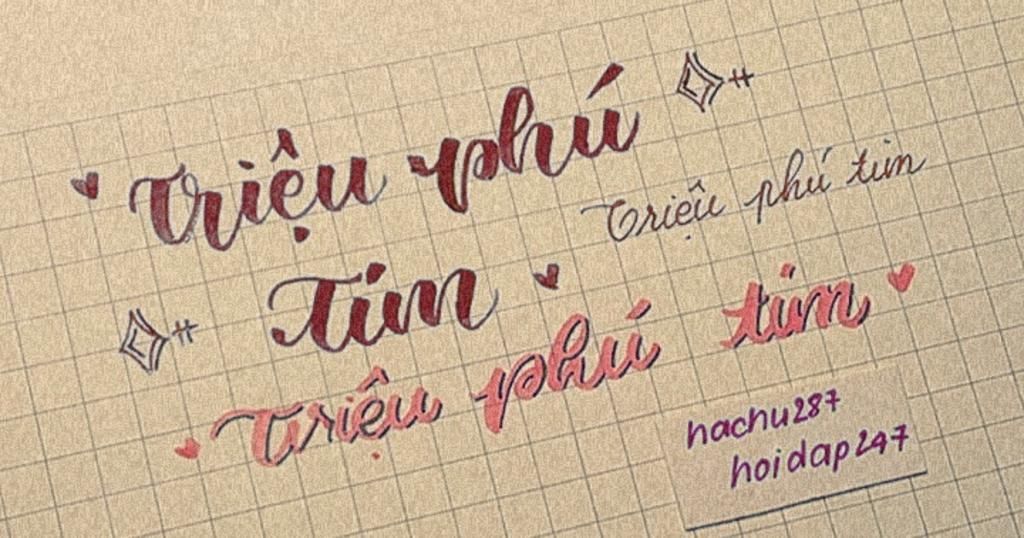 Triệu phú
Tim
Triệu phú tim
Triệu phú tim
hachu287
hoidap247